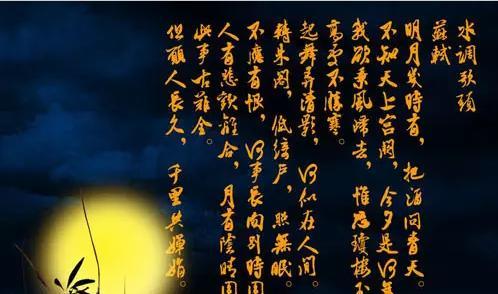 水调歌頭
蘇軾
明月幾時有，把酒问青天。
不知天上宫闕，今夕是何年
我欲乘風歸去，惟恐瓊樓玉
高處不勝寒。
起舞弄清影，何似在人间。
轉朱阁，低绮户，照無眠。
不應有恨，何事長向别時圆
人有悲歡離合，月有陰晴圆
此事古難全。
但願人長久，千里共嬋娟。